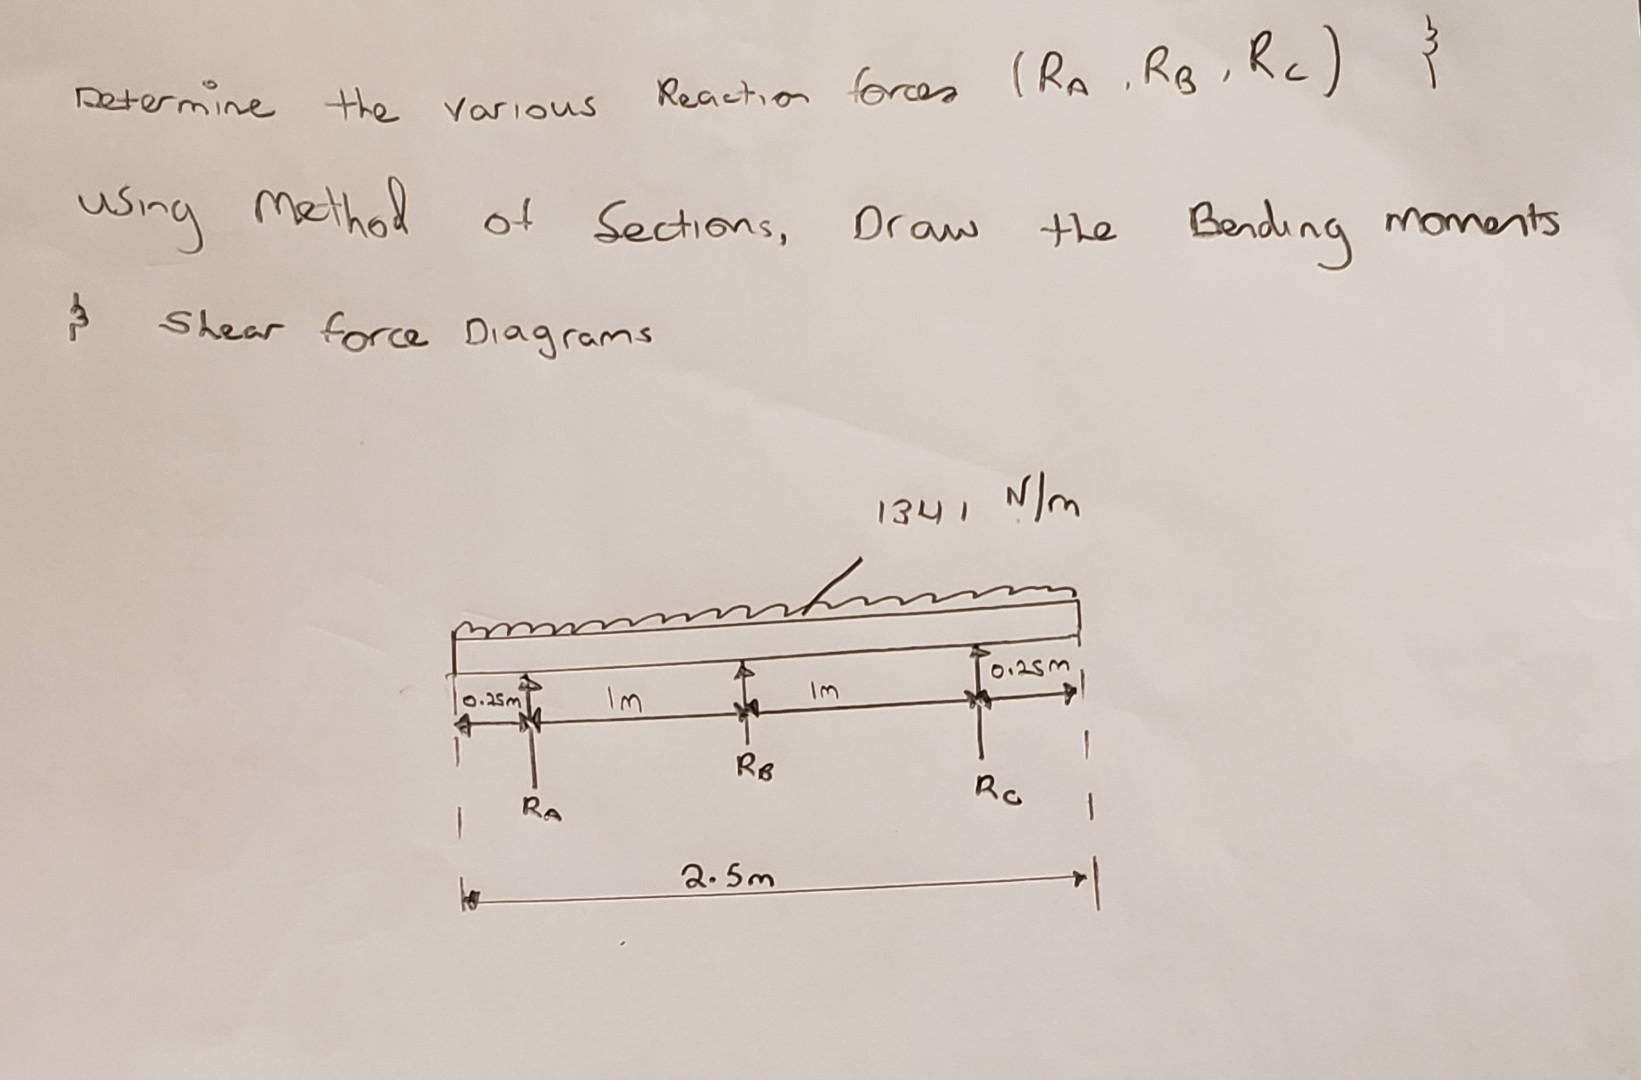 Determine the various Reaction forces (RA, RB, RC) &
using Method of Sections, Draw the Bending moments
& Shear force Diagrams
1341 N/m
0.25m 1m 1m 0.25m
RA RB RC
2.5m